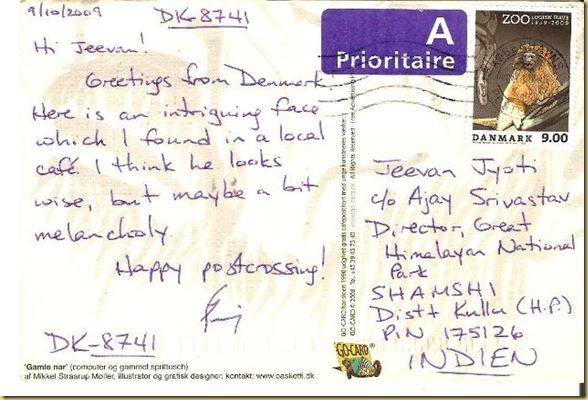 9/10/2009
DK-8741
Hi Jeevan!
Greetings from Denmark.
Here is an intriguing face
which I found in a local
café. I think he looks
wise, but maybe a bit
melancholy.
Happy postcrossing!
DK-8741
'Gamle nar' (computer og gammel sprittusch)
af Mikkel Strasrup Møller, illustrator og grafisk designer. kontakt: www.basketti.dk
A
Prioritaire
ZOO LOGISK HAVE
1859-2009
DANMARK 9.00
Jeevan Jyoti
c/o Ajay Srivastav
Director, Great
Himalayan National
Park
SHAMSHI
Distt Kullu (H.P.)
PIN 175126
INDIEN
GO-CARD